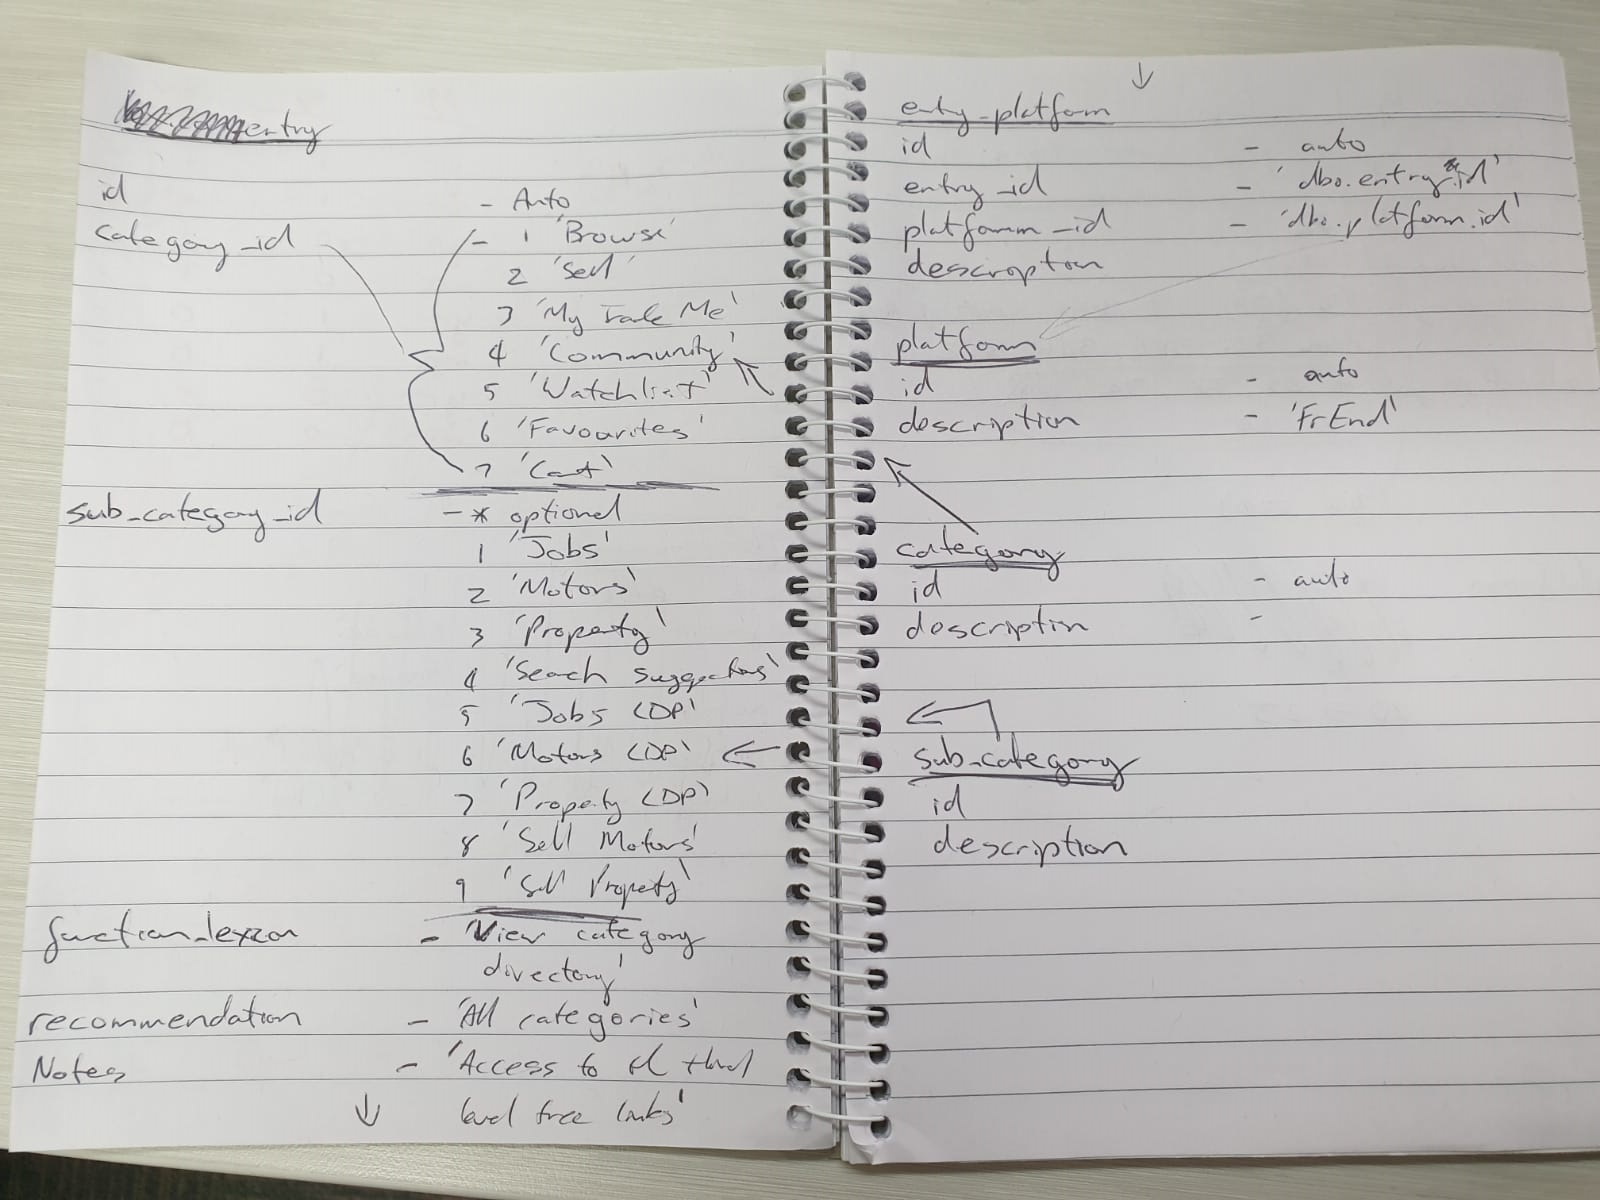 entry
id - Auto
category_id - 1 'Browse'
2 'Sell'
3 'My Trade Me'
4 'Community'
5 'Watchlist'
6 'Favourites'
7 'Cart'
sub_category_id - * optional
1 'Jobs'
2 'Motors'
3 'Property'
4 'Search suggestions'
5 'Jobs LDP'
6 'Motors LDP'
7 'Property LDP'
8 'Sell Motors'
9 'Sell Property'
function_lexicon - 'View category
directory'
recommendation - 'All categories'
Notes - 'Access to third
level tree links'
↓
↓
entry_platform
id - auto
entry_id - 'dbo.entry.id'
platform_id - 'dbo.platform.id'
description
platform
id - auto
description - 'FrEnd'
category
id - auto
description -
sub_category
id
description